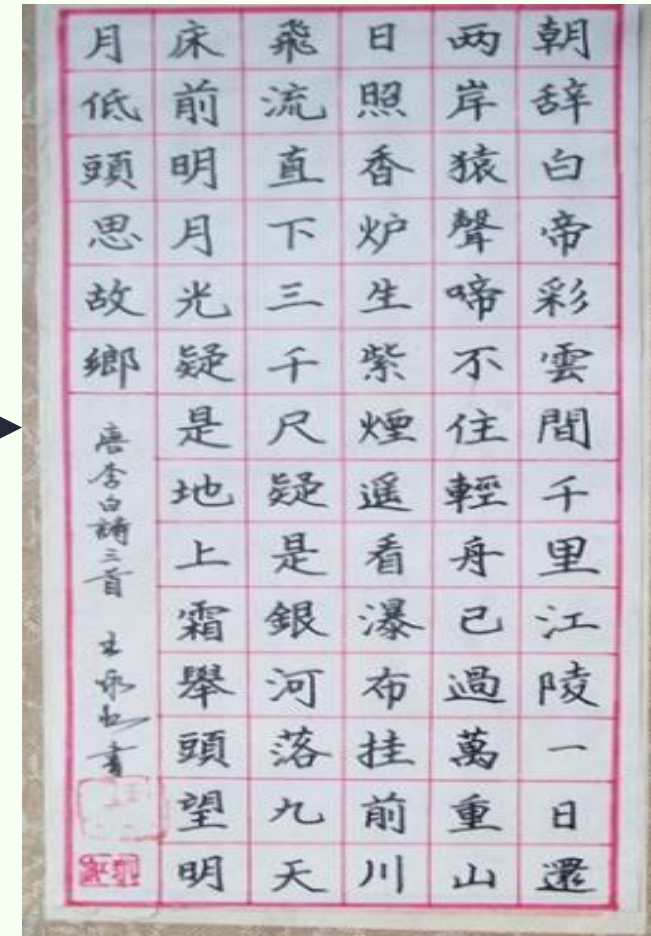 朝辞白帝彩雲間千里江陵一日還
两岸猿聲啼不住輕舟已過萬重山
日照香炉生紫煙遥看瀑布挂前川
飛流直下三千尺疑是銀河落九天
床前明月光疑是地上霜舉頭望明
月低頭思故鄉
唐李白詩三首 王
書